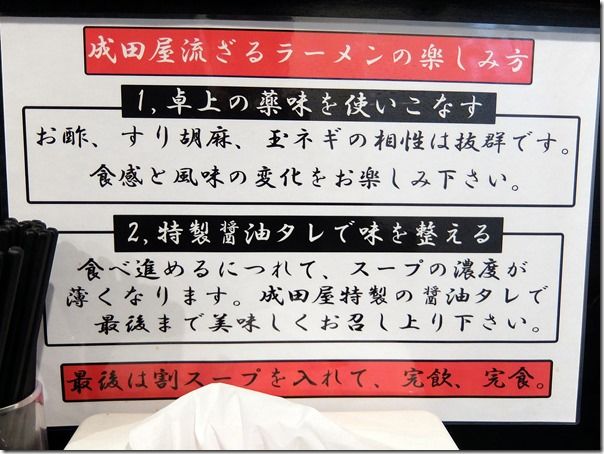 成田屋流ざるラーメンの楽しみ方
1,卓上の薬味を使いこなす
お酢、すり胡麻、玉ネギの相性は抜群です。
食感と風味の変化をお楽しみ下さい。
2,特製醤油タレで味を整える
食べ進めるにつれて、スープの濃度が
薄くなります。成田屋特製の醤油タレで
最後まで美味しくお召し上り下さい。
最後は割スープを入れて、完飲、完食。